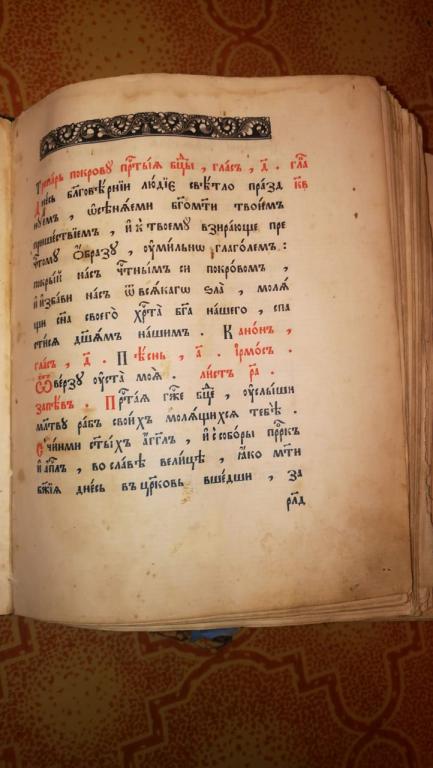 Тропарь покровꙋ прⷭ҇тыѧ бцⷣы , гласъ , д҃ . гла
Днесь бл҃говѣрнїи людїе свѣтло празд кв
нꙋемъ , ѡсѣнѧеми бг҃омт҃и твоимъ
пришествїемъ , и҆ к҆ твоемꙋ взирающе пре
чⷭ҇томꙋ ѻбразꙋ , ᲂумильнѡ глаголемъ :
покрый насъ чⷭ҇тнымъ си покровомъ ,
и҆ и҆збави насъ ѿ всѧкагѡ ѕла̀ , молѧ
щи сн҃а своего̀ хрⷭ҇та̀ бг҃а нашего , спа
стисѧ дш҃амъ нашимъ . Канонъ ,
гласъ , д҃ . Пѣснь , а҃ . і҆рмосъ .
Ѿверзꙋ ᲂуста̀ моѧ̀ . листъ р҃а .
запѣвъ . Прⷭ҇таѧ гжⷭ҇е бцⷣе , ᲂуслыши
мл҃твꙋ рабъ своихъ молѧщихсѧ тебѣ .
С чи́нми ст҃ыхъ а҆гг҃лъ , и҆ с҆оборы прⷪ҇рокъ
и҆ а҆пⷭ҇лъ , во славѣ велицѣ , ꙗко мт҃и
бж҃їѧ днесь въ црⷪ҇ковь вшедши , за
рⷶ҇д